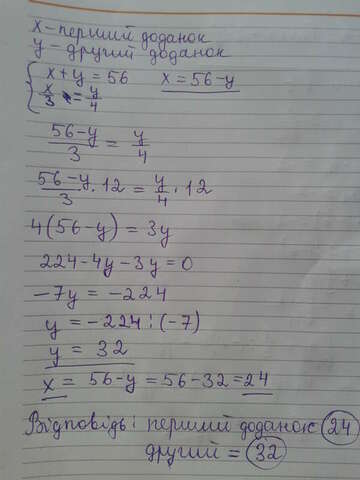 x - перший доданок
y - другий доданок
{ x + y = 56    x = 56 - y
x/3 = y/4
56-y/3 = y/4
56-y/3 · 12 = y/4 · 12
4(56-y) = 3y
224 - 4y - 3y = 0
-7y = -224
y = -224 : (-7)
y = 32
x = 56-y = 56-32 = 24
Відповідь: перший доданок 24
другий = 32